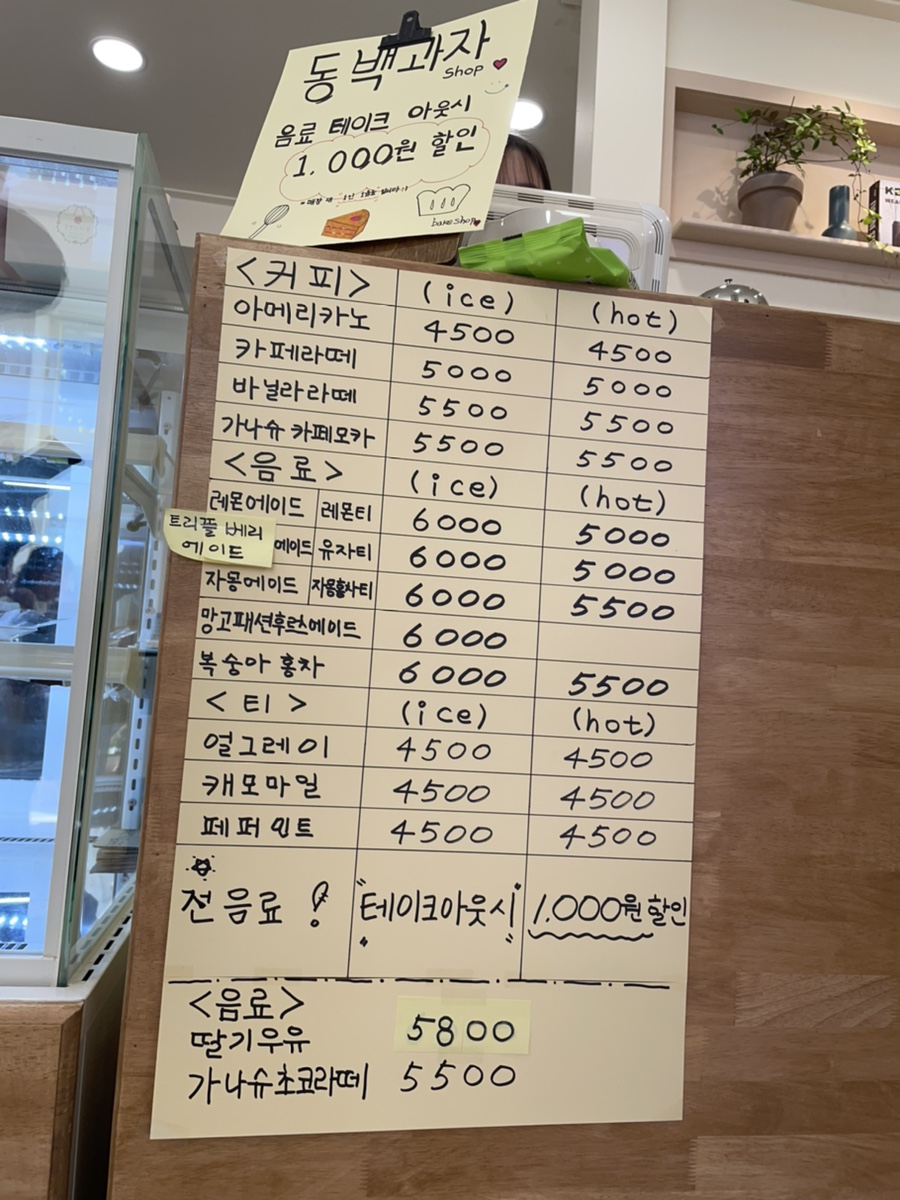 동백과자
shop
음료 테이크 아웃시
1.000원 할인
bakeshop
<커피> (ice) (hot)
아메리카노 4500 4500
카페라떼 5000 5000
바닐라라떼 5500 5500
가나슈 카페모카 5500 5500
<음료> (ice) (hot)
레몬에이드 레몬티 6000 5000
트리플 베리
에이드
에이드 유자티 6000 5000
자몽에이드 자몽홍차티 6000 5500
망고패션후르츠에이드 6000
복숭아 홍차 6000 5500
<티> (ice) (hot)
얼그레이 4500 4500
캐모마일 4500 4500
페퍼민트 4500 4500
전음료! "테이크아웃시" 1.000원 할인
<음료>
딸기우유 5800
가나슈초코라떼 5500